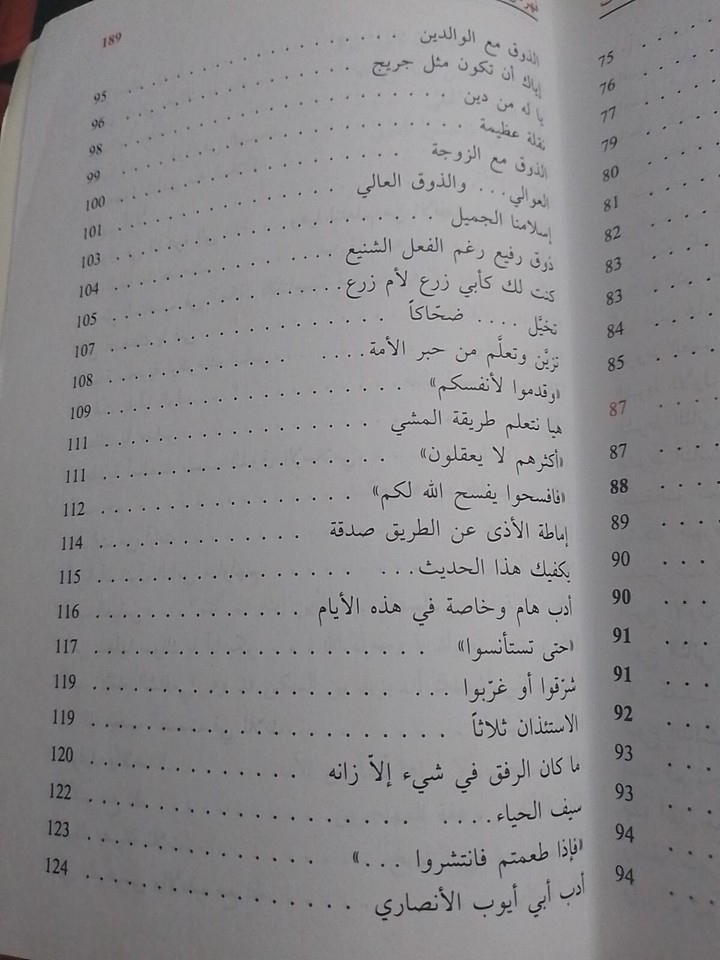 75
76
77
79
80
81
82
83
83
84
85
87
87
88
89
90
90
91
91
92
93
93
94
94
189
الذوق مع الوالدين . . . . . . . . . . . . 95
إياك أن تكون مثل جريج . . . . . . . . . . . . 96
يا له من دين . . . . . . . . . . . . 98
نقلة عظيمة . . . . . . . . . . . . 99
الذوق مع الزوجة . . . . . . . . . . . . 100
العوالي... والذوق العالي . . . . . . . . . . . . 101
إسلامنا الجميل . . . . . . . . . . . . 103
ذوق رفيع رغم الفعل الشنيع . . . . . . . . . . . . 104
كنت لك كأبي زرع لأم زرع . . . . . . . . . . . . 105
تخيَّل .... ضحّاكاً . . . . . . . . . . . . 107
تزيَّن وتعلَّم من حبر الأمة.... . . . . . . . . . 108
«وقدموا لأنفسكم» . . . . . . . . . . . . 109
هيا نتعلم طريقة المشي . . . . . . . . . . . . 111
«أكثرهم لا يعقلون» . . . . . . . . . . . . 111
«فافسحوا يفسح الله لكم» . . . . . . . . . . . . 112
إماطة الأذى عن الطريق صدقة . . . . . . . . . . . . 114
يكفيك هذا الحديث... . . . . . . . . . . 115
أدب هام وخاصة في هذه الأيام . . . . . . . . . . . . 116
«حتى تستأنسوا» . . . . . . . . . . . . 117
شرّقوا أو غرّبوا ... . . . . . . . . . . 119
الاستئذان ثلاثاً . . . . . . . . . . . . 119
ما كان الرفق في شيء إلاّ زانه . . . . . . . . . . . . 120
سيف الحياء.... . . . . . . . . . 122
«فإذا طعمتم فانتشروا ...» . . . . . . . . . . . . 123
أدب أبي أيوب الأنصاري . . . . . . . . . . . . 124